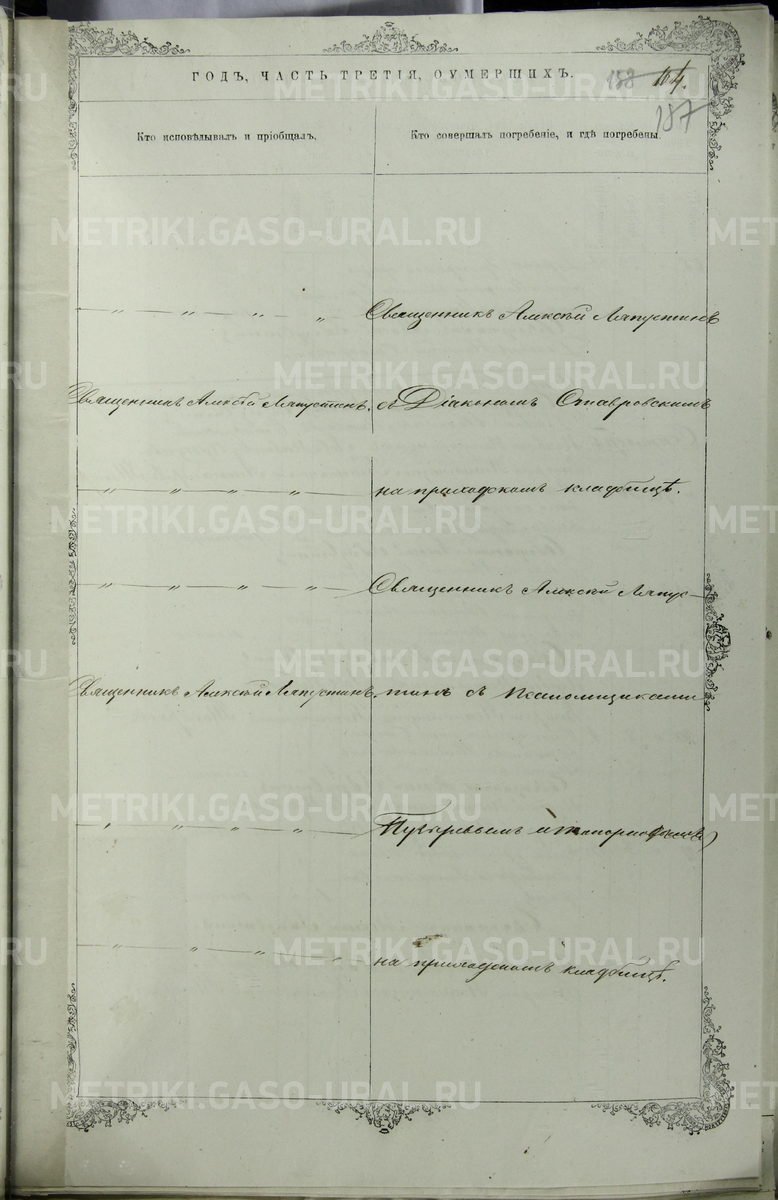 ГОДЪ, ЧАСТЬ ТРЕТІЯ, ОУМЕРШИХЪ.
158 164.
187
Кто исповѣдывалъ и пріобщалъ.
Кто совершалъ погребеніе, и гдѣ погребены.
— „ — „ — „ — „
Священникъ Алексѣй Ляпустинъ
Священникъ Алексѣй Ляпустинъ.
съ Діакономъ Ставровскимъ
— „ — „ — „ — „ —
на приходскомъ кладбищѣ.
— „ — „ — „ — „ —
Священникъ Алексѣй Ляпус-
Священникъ Алексѣй Ляпустинъ.
тинъ съ Псаломщиками
— „ — „ — „ — „ —
и
— „ — „ — „ — „
на приходскомъ кладбищѣ.
METRIKI.GASO-URAL.RU